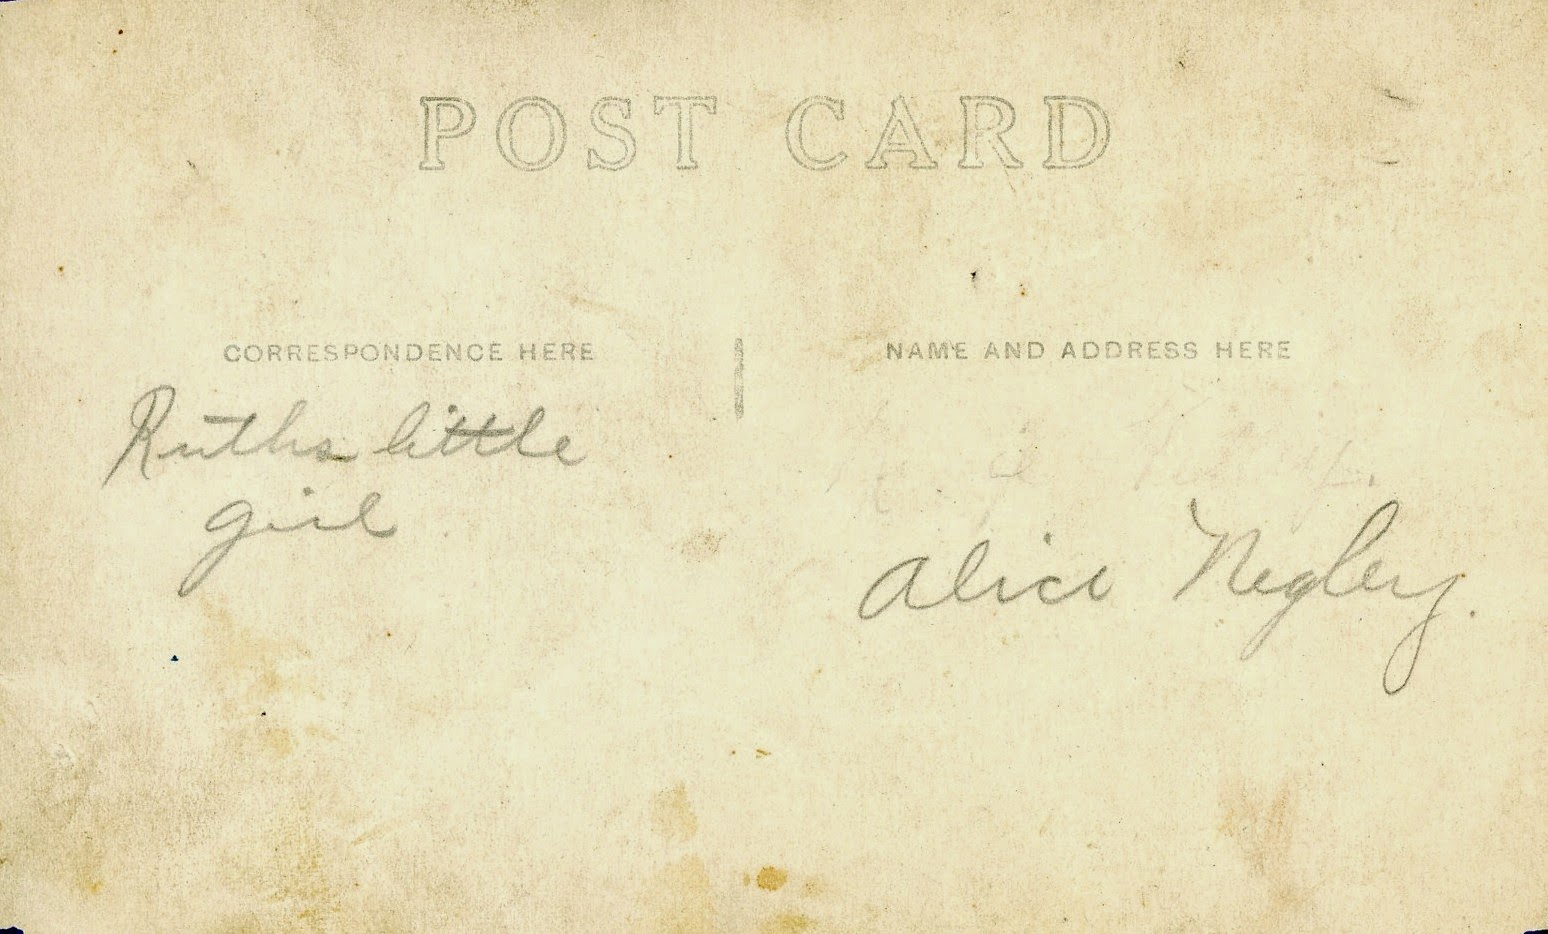 POST CARD
CORRESPONDENCE HERE
NAME AND ADDRESS HERE
Ruths little
girl
Alice Negley.